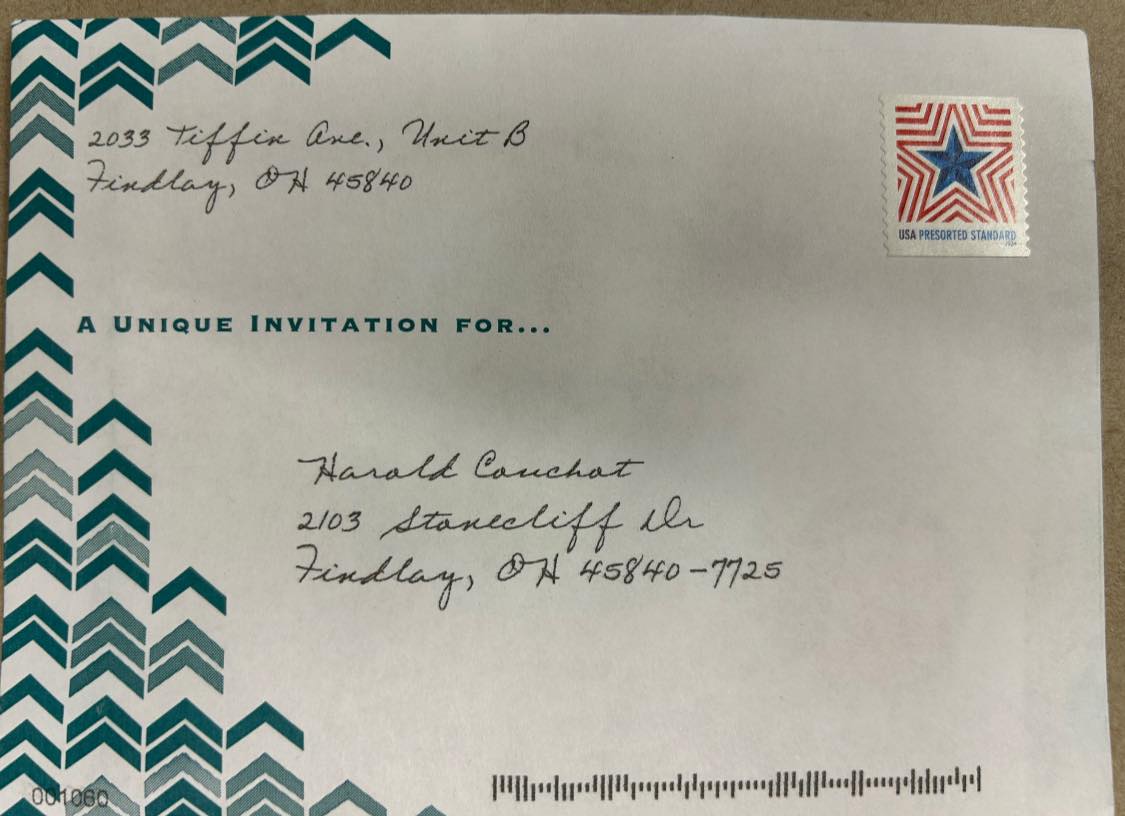 2033 Tiffin Ave., Unit B
Findlay, OH 45840
USA PRESORTED STANDARD
A UNIQUE INVITATION FOR...
Harold Couchot
2103 Stonecliff Dr
Findlay, OH 45840-7725
001060